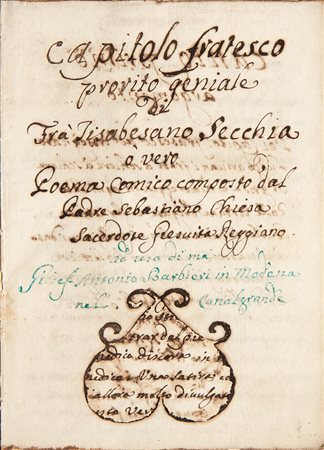 Capitolo fratesco
prorito geniale
Di
Frà Tisabesano Secchia
ò vero
Poema Comico composto dal
Padre Sebastiano Chiesa
Sacerdote Gesuita Reggiano
ad uso di me
Gios.f Antonio Barbieri in Modena
nel Canalgrande
in
satire
molto divulgat